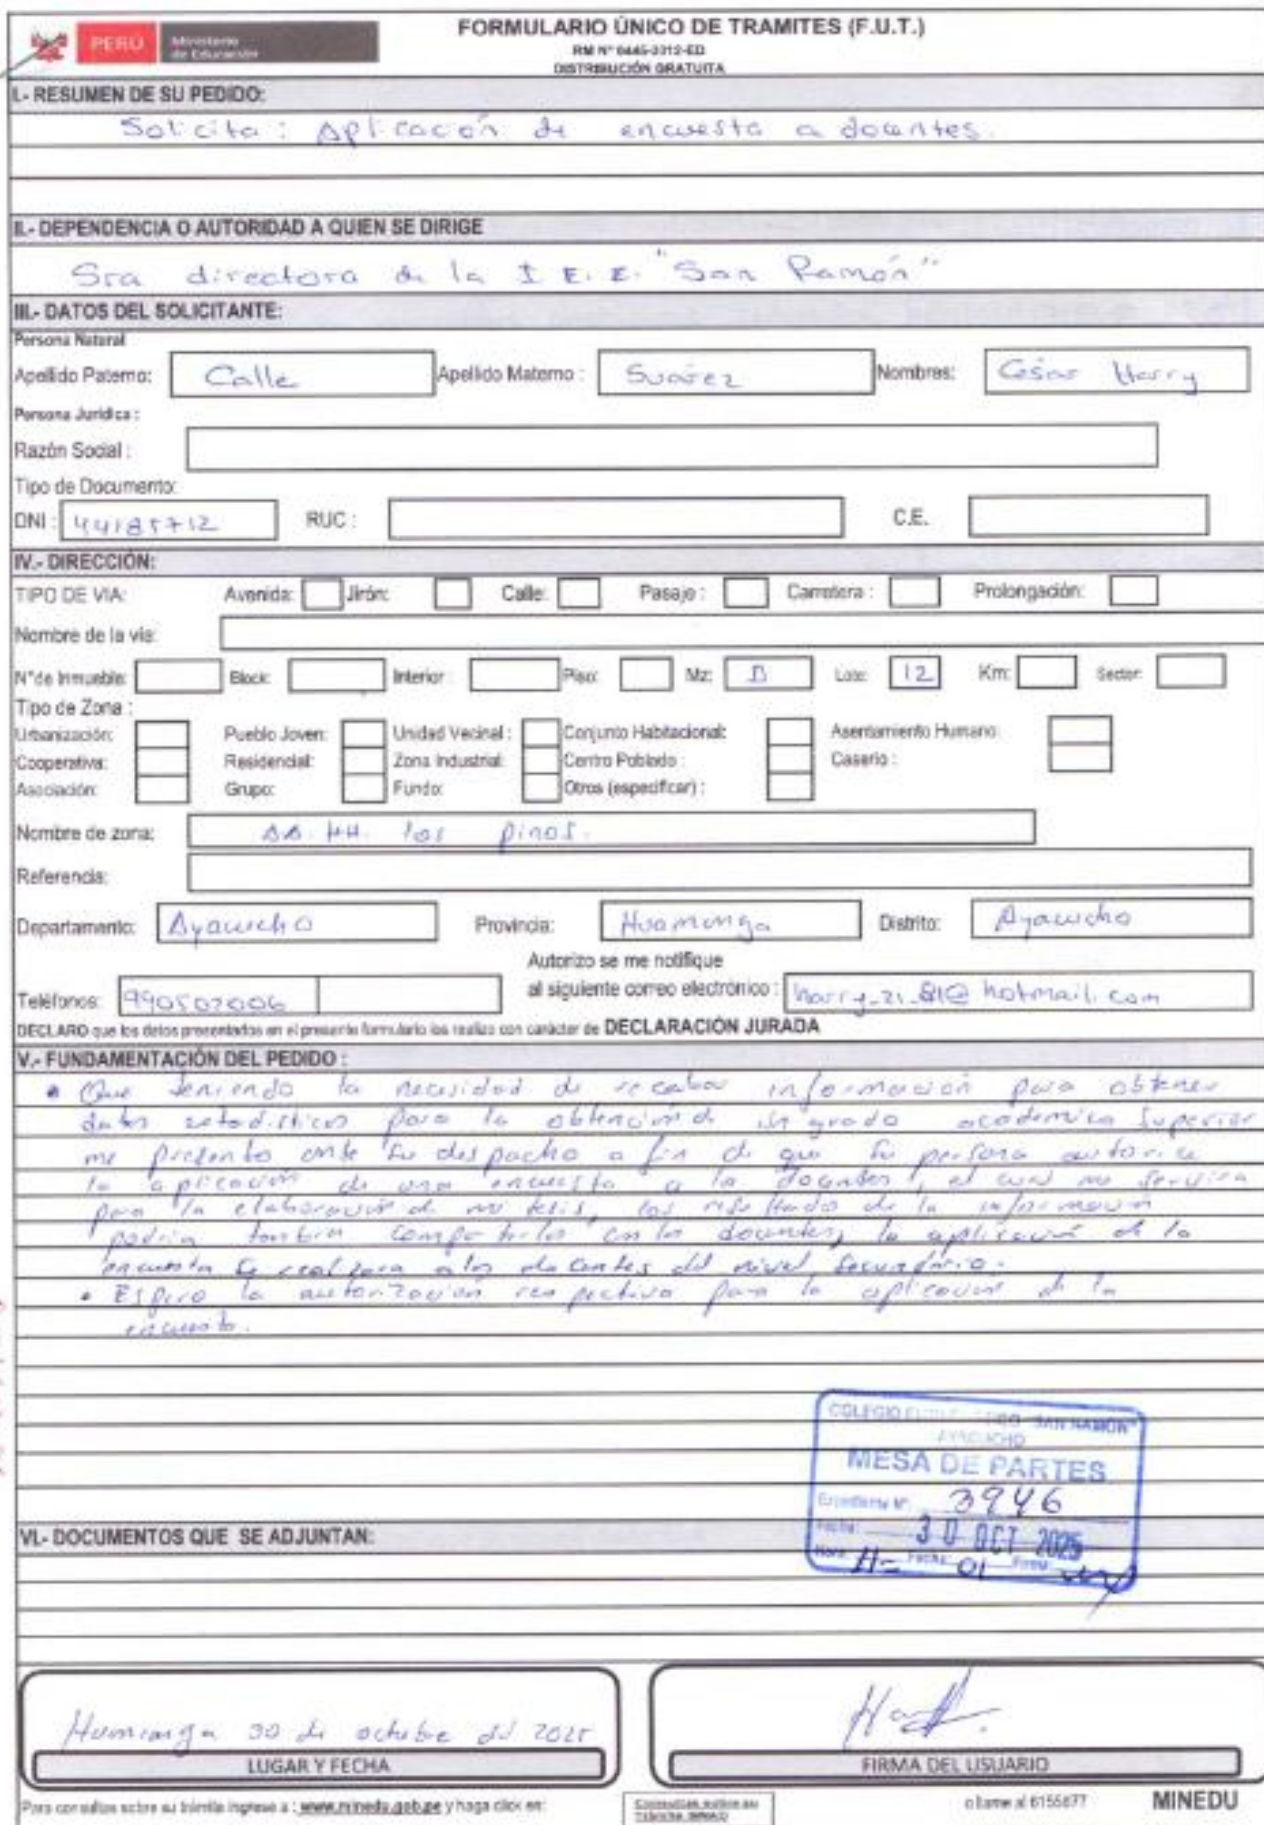 PERÚ Ministerio de Educación
FORMULARIO ÚNICO DE TRAMITES (F.U.T.)
RM N° 0445-2012-ED
DISTRIBUCIÓN GRATUITA
I.- RESUMEN DE SU PEDIDO:
Solicita: Aplicación de encuesta a docentes.
II.- DEPENDENCIA O AUTORIDAD A QUIEN SE DIRIGE
Sra directora de la I.E.E. "San Ramón"
III.- DATOS DEL SOLICITANTE:
Persona Natural
Apellido Paterno: Calle Apellido Materno : Suárez Nombres: César Harry
Persona Jurídica :
Razón Social :
Tipo de Documento:
DNI : 44185712 RUC : C.E.
IV.- DIRECCIÓN:
TIPO DE VIA: Avenida: Jirón: Calle: Pasaje : Carretera : Prolongación:
Nombre de la vía:
N°de Inmueble: Block: Interior : Piso: Mz: B Lote: 12 Km: Sector:
Tipo de Zona :
Urbanización: Pueblo Joven: Unidad Vecinal : Conjunto Habitacional: Asentamiento Humano:
Cooperativa: Residencial: Zona Industrial: Centro Poblado : Caserio :
Asociación: Grupo: Fundo: Otros (especificar) :
Nombre de zona: AA. HH. los pinos.
Referencia:
Departamento: Ayacucho Provincia: Huamanga Distrito: Ayacucho
Autorizo se me notifique
Teléfonos: 990502006 al siguiente correo electrónico : harry_21_81@hotmail.com
DECLARO que los datos presentados en el presente formulario los realizo con carácter de DECLARACIÓN JURADA
V.- FUNDAMENTACIÓN DEL PEDIDO :
• Que teniendo la necesidad de recabar información para obtener
datos estadísticos para la obtención de un grado académico superior
me presento ante su despacho a fin de que su persona autorice
la aplicación de una encuesta a los docentes, el cual me servira
para la elaboración de mi tesis, los resultado de la información
podrán tambien compartirlos con los docentes, la aplicación de la
encuesta se realizara a los docentes del nivel secundario.
• Espero la autorización respectiva para la aplicación de la
encuesta.
COLEGIO "SAN RAMÓN"
AYACUCHO
MESA DE PARTES
Expediente N° 3946
Fecha: 30 OCT 2025
Hora: Fecha: 01 Firma:
VI.- DOCUMENTOS QUE SE ADJUNTAN:
Huamanga 30 de octubre del 2025
LUGAR Y FECHA FIRMA DEL USUARIO
Para consultas sobre su trámite ingrese a : www.minedu.gob.pe y haga click en: Consultas sobre su Trámite SINAD o llame al 6155877 MINEDU